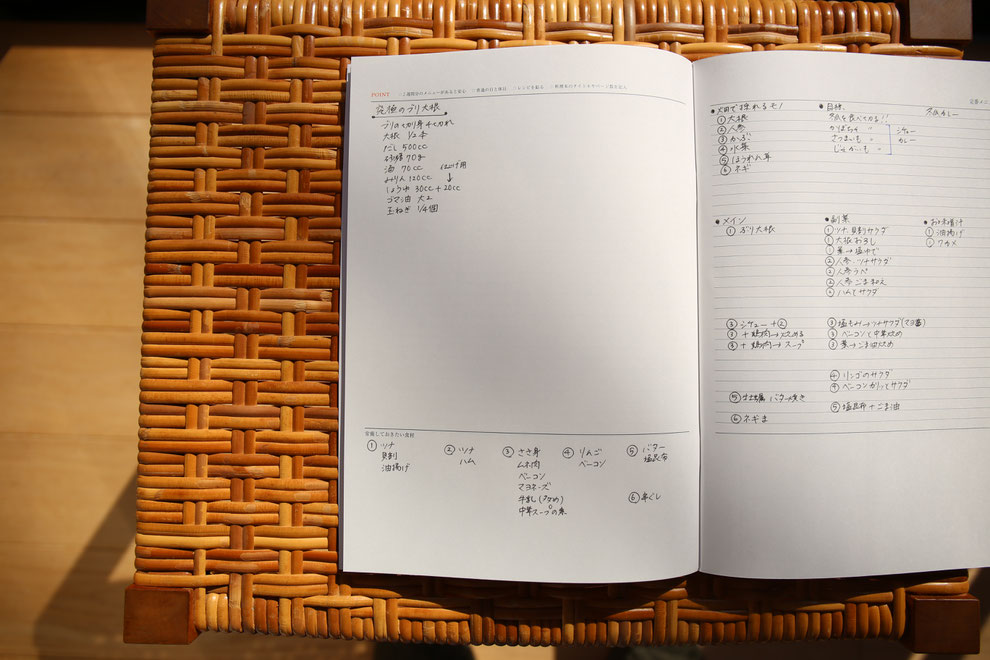 POINT
究極のブリ大根
ブリの切り身 4切れ
大根 1/2本
だし 500cc
砂糖 70g
酒 70cc
みりん 120cc
仕上げ用
↓
しょうゆ 30cc + 20cc
ゴマ油 大2
玉ねぎ 1/4個
常備しておきたい食材
① ツナ
貝割
油揚げ
② ツナ
ハム
③ ささ身
ムネ肉
ベーコン
マヨネーズ
中華スープの素
④ りんご
ベーコン
⑤ バター
塩昆布
⑥ 串ぐし
定番メニ
● 畑で採れるモノ
① 大根
② 人参
③ かぶ
④ 水菜
⑤ ほうれん草
⑥ ネギ
● 目標
かぼちゃ 〃
さつまいも 〃
じゃがいも 〃
シチュー
カレー
● メイン
① ぶり大根
③ シチュー + ②
③ + 鶏肉 → 炒める
③ + 鶏肉 → スープ
⑤ 牡蠣 バター焼き
⑥ ネギま
● 副菜
① ツナ、貝割サラダ
① 大根おろし
① 葉→塩ゆで
② 人参・ツナサラダ
② 人参ラペ
② 人参ごま和え
② ハムとサラダ
③ 塩もみ→ツナサラダ(マヨ醤)
③ ベーコンと中華炒め
③ 葉→ごま油炒め
④ リンゴのサラダ
④ ベーコンカリッとサラダ
⑤ 塩昆布 + ごま油
● お味噌汁
① 油揚げ
① ワカメ